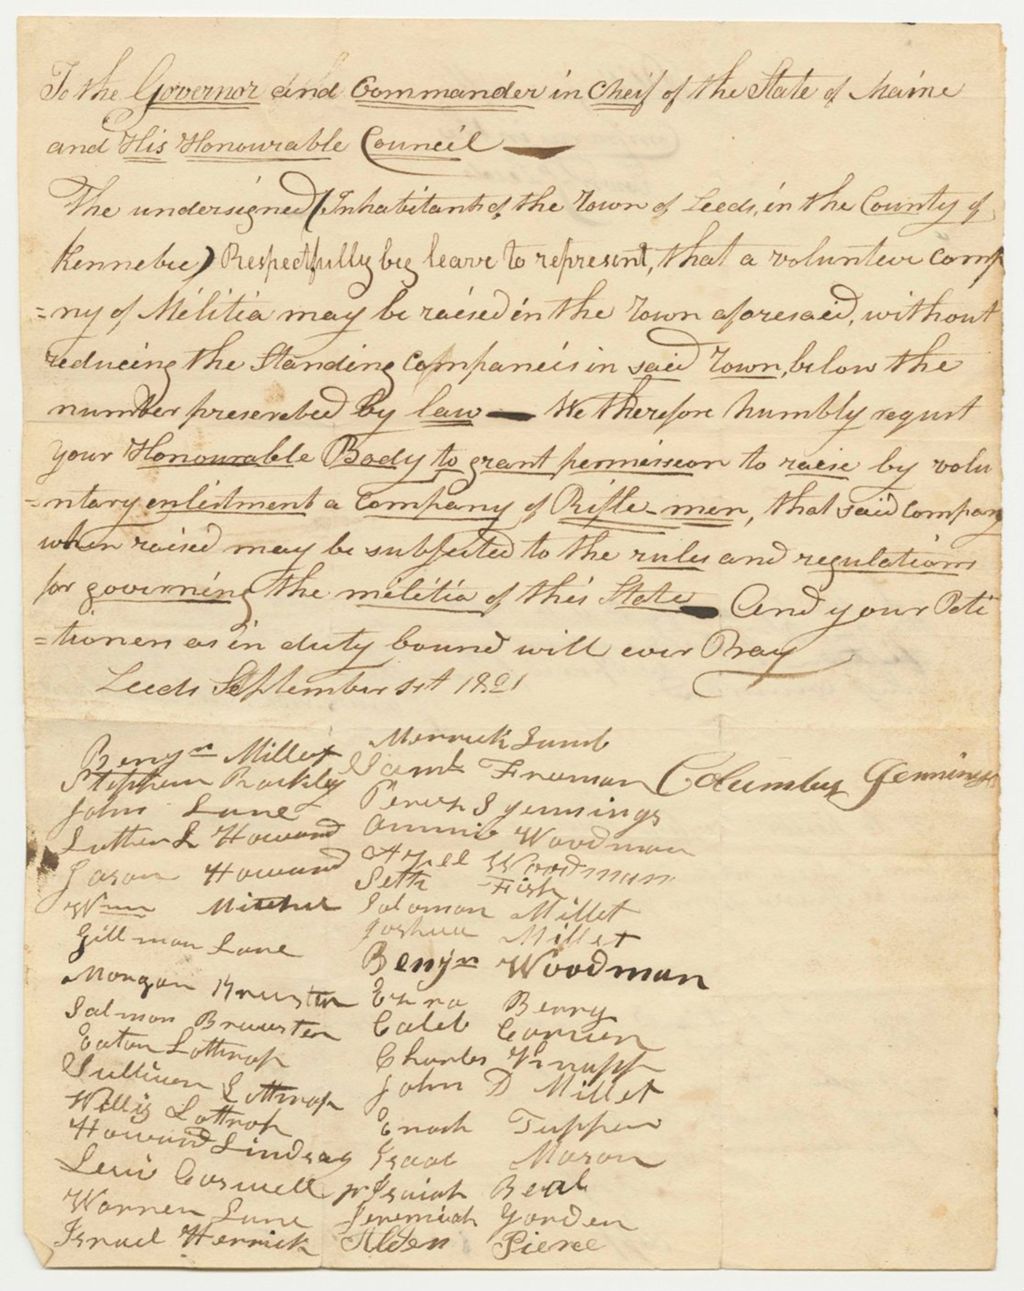 To the Governor and Commander in Cheif of the State of Maine
and His Honourable Council
The undersigned (Inhabitants of the Town of Leeds, in the County of
Kennebec) Respectfully beg leave to represent, that a volunteer comp
=ny of Militia may be raised in the Town aforesaid, without
reducing the Standing Companeis in said Town, below the
number prescrebed by law — We therefore humbly request
your Honourable Body to grant permission to raise by volu
=ntary enlistment a Company of Rifle-men, that said company
when raised may be subjected to the rules and regulations
for governing the militia of this State — And your Peti
=tioners as in duty bound will ever Pray
Leeds September 1st 1821
Benjn Millet
Stephen Barkley
John Lane
Luther L Howard
Jason Howard
Wm Mitchel
Gillman Lane
Morgan Bruster
Salmon Brewster
Eaton Lothrop
Sullivan Lothrop
Willis Lothrop
Howard Lindsay
Levi Caswell jr
Warren Lane
Israel Herrick
Merrick Lamb
Saml Freeman
Perez S Jennings
Annis Woodman
Azel Woodman
Seth Fish
Solomon Millet
Joshua Millet
Benjn Woodman
Ezra Berry
Caleb
Charles Knapp
John D Millet
Enoch
Isaac Mason
Isaiah Beal
Jeremiah
Alden Pierce
Columbus Jennings